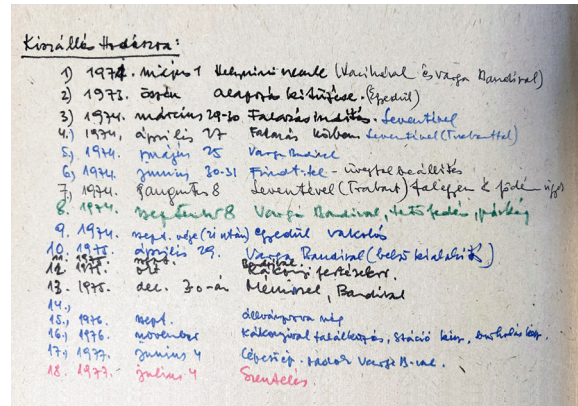 Kiszállás Hodászra:
1) 1974. május 1 Helyszíni szemle (Vacihoval és Varga Bandival)
2) 1973. őszén alaprajz kitűzése. (Egyedül)
3) 1974. március 29-30 Falazás indítás. Leventével
4.) 1974. április 27 Falazás közben Leventével (Trabanttal)
5.) 1974. május 25 Varga Bandival
6.) 1974. junius 30-31 - üvegtel beállítás
7.) 1974. augusztus 8 Leventével (Trabant) födém
8. 1974. szeptember 8 Varga Bandival, tetőfedés,
9. 1974. szept. vége (21 után) egyedül vakolás
10. 1975. április 29. Varga Bandival (belső kialakítás)
11. 1975 szept. Bandival
12 1975. okt Kákonyi festésekor.
13. 1975. dec. 30-án Bandival
14.,
15., 1976. szept. állványozva még
16., 1976. november Kákonyival találkozás, stáció kész, burkolás kész.
17., 1977. junius 4 Varga B-val.
18. 1977. július 4 Szentelés.